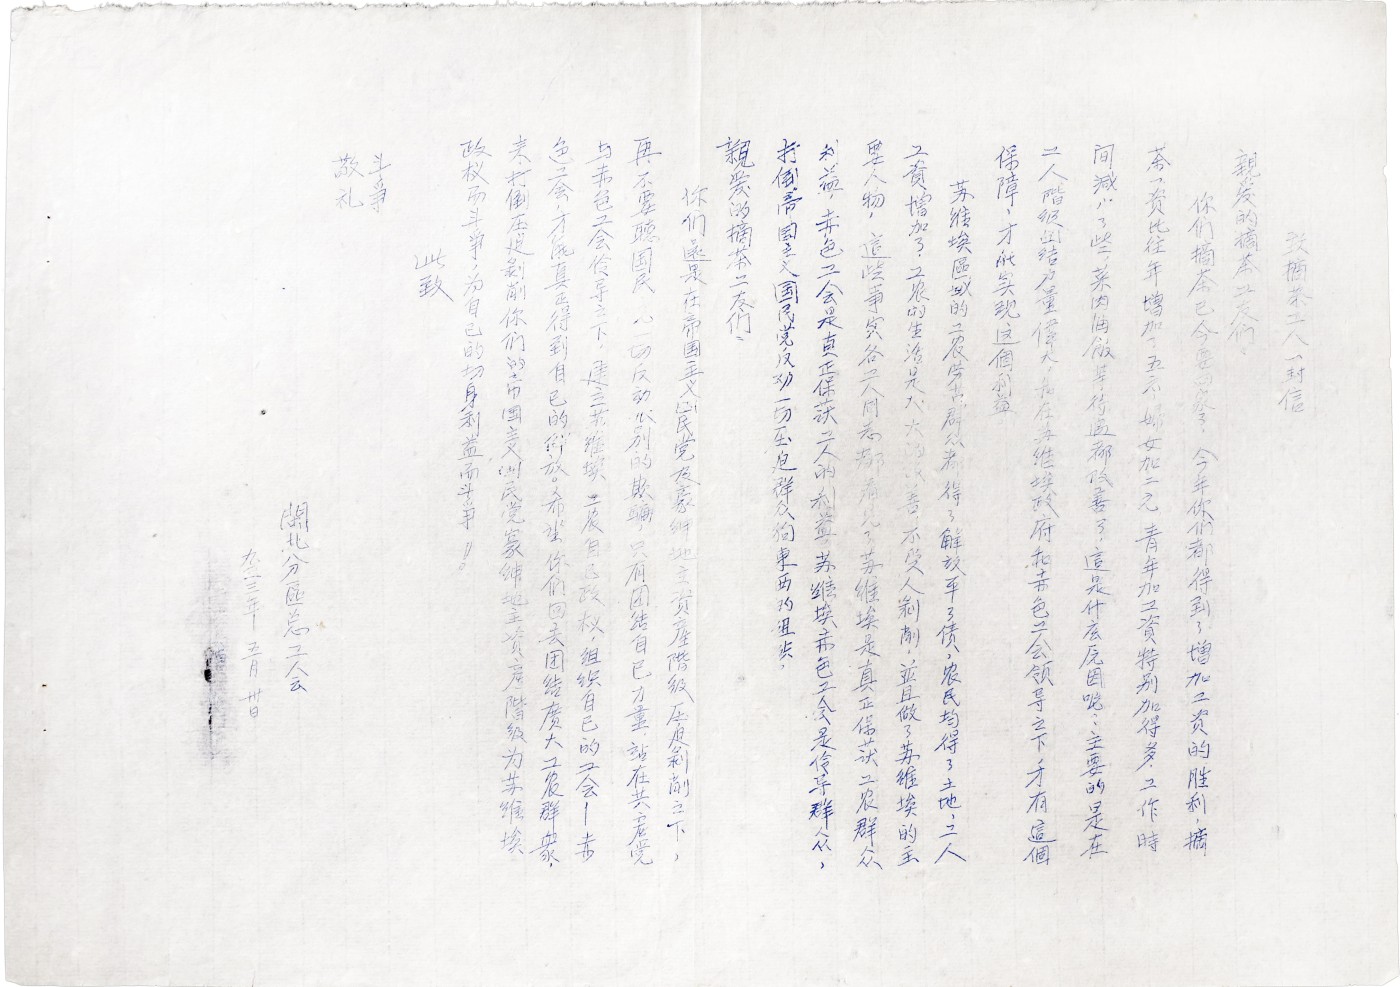 致摘茶工人一封信
親爱的摘茶工友们、
你们摘茶已今要四祭了、今年你们都得到了增加工资的胜利，摘
茶工资比往年增加了五六 妇女加二元 青年加工資特别加得多、工作時
间減少了些、菜肉油飯茶待遇都改善了、這是什庅原因呢、主要的是在
工人階級团结力量偉大、和在苏维埃政府和赤色工会领导之下、才有這個
保障、才能实现這個利益
苏维埃區域的工农劳苦群众都得了解放平了债、农民均得了土地、工人
工資增加了、工农的生活是大大的改善、不受人剥削、並且做了苏维埃的主
要人物，這些事实各工人同志都看見了苏维埃是真正保获工农群众
利益，赤色工会是真正保获工人的利益、苏维埃赤色工会是伶导群众，
打倒帝国主义国民党反动一切压迫群众狗東西的
親爱的摘茶工友们、
你们還是在帝国主义囯民党及豪绅地主資產階級压迫剥削之下，
再不要聽国民 一切反动派别的欺騙、只有团结自己力量、站在共产党
与赤色工会伶导之下，建立苏维埃 工农自己政权，组织自己的工会—赤
色工会，才能真正得到自己的解放。希望你们回去团结廣大工农群衆，
来打倒压迫剥削你们的帝国主义囯民党豪绅地主资產階级为苏维埃
政权而斗争，为自己的切身利益而斗争！！
此致
斗争
敬礼
閩北分區总工会
九三三年 五月 廿日